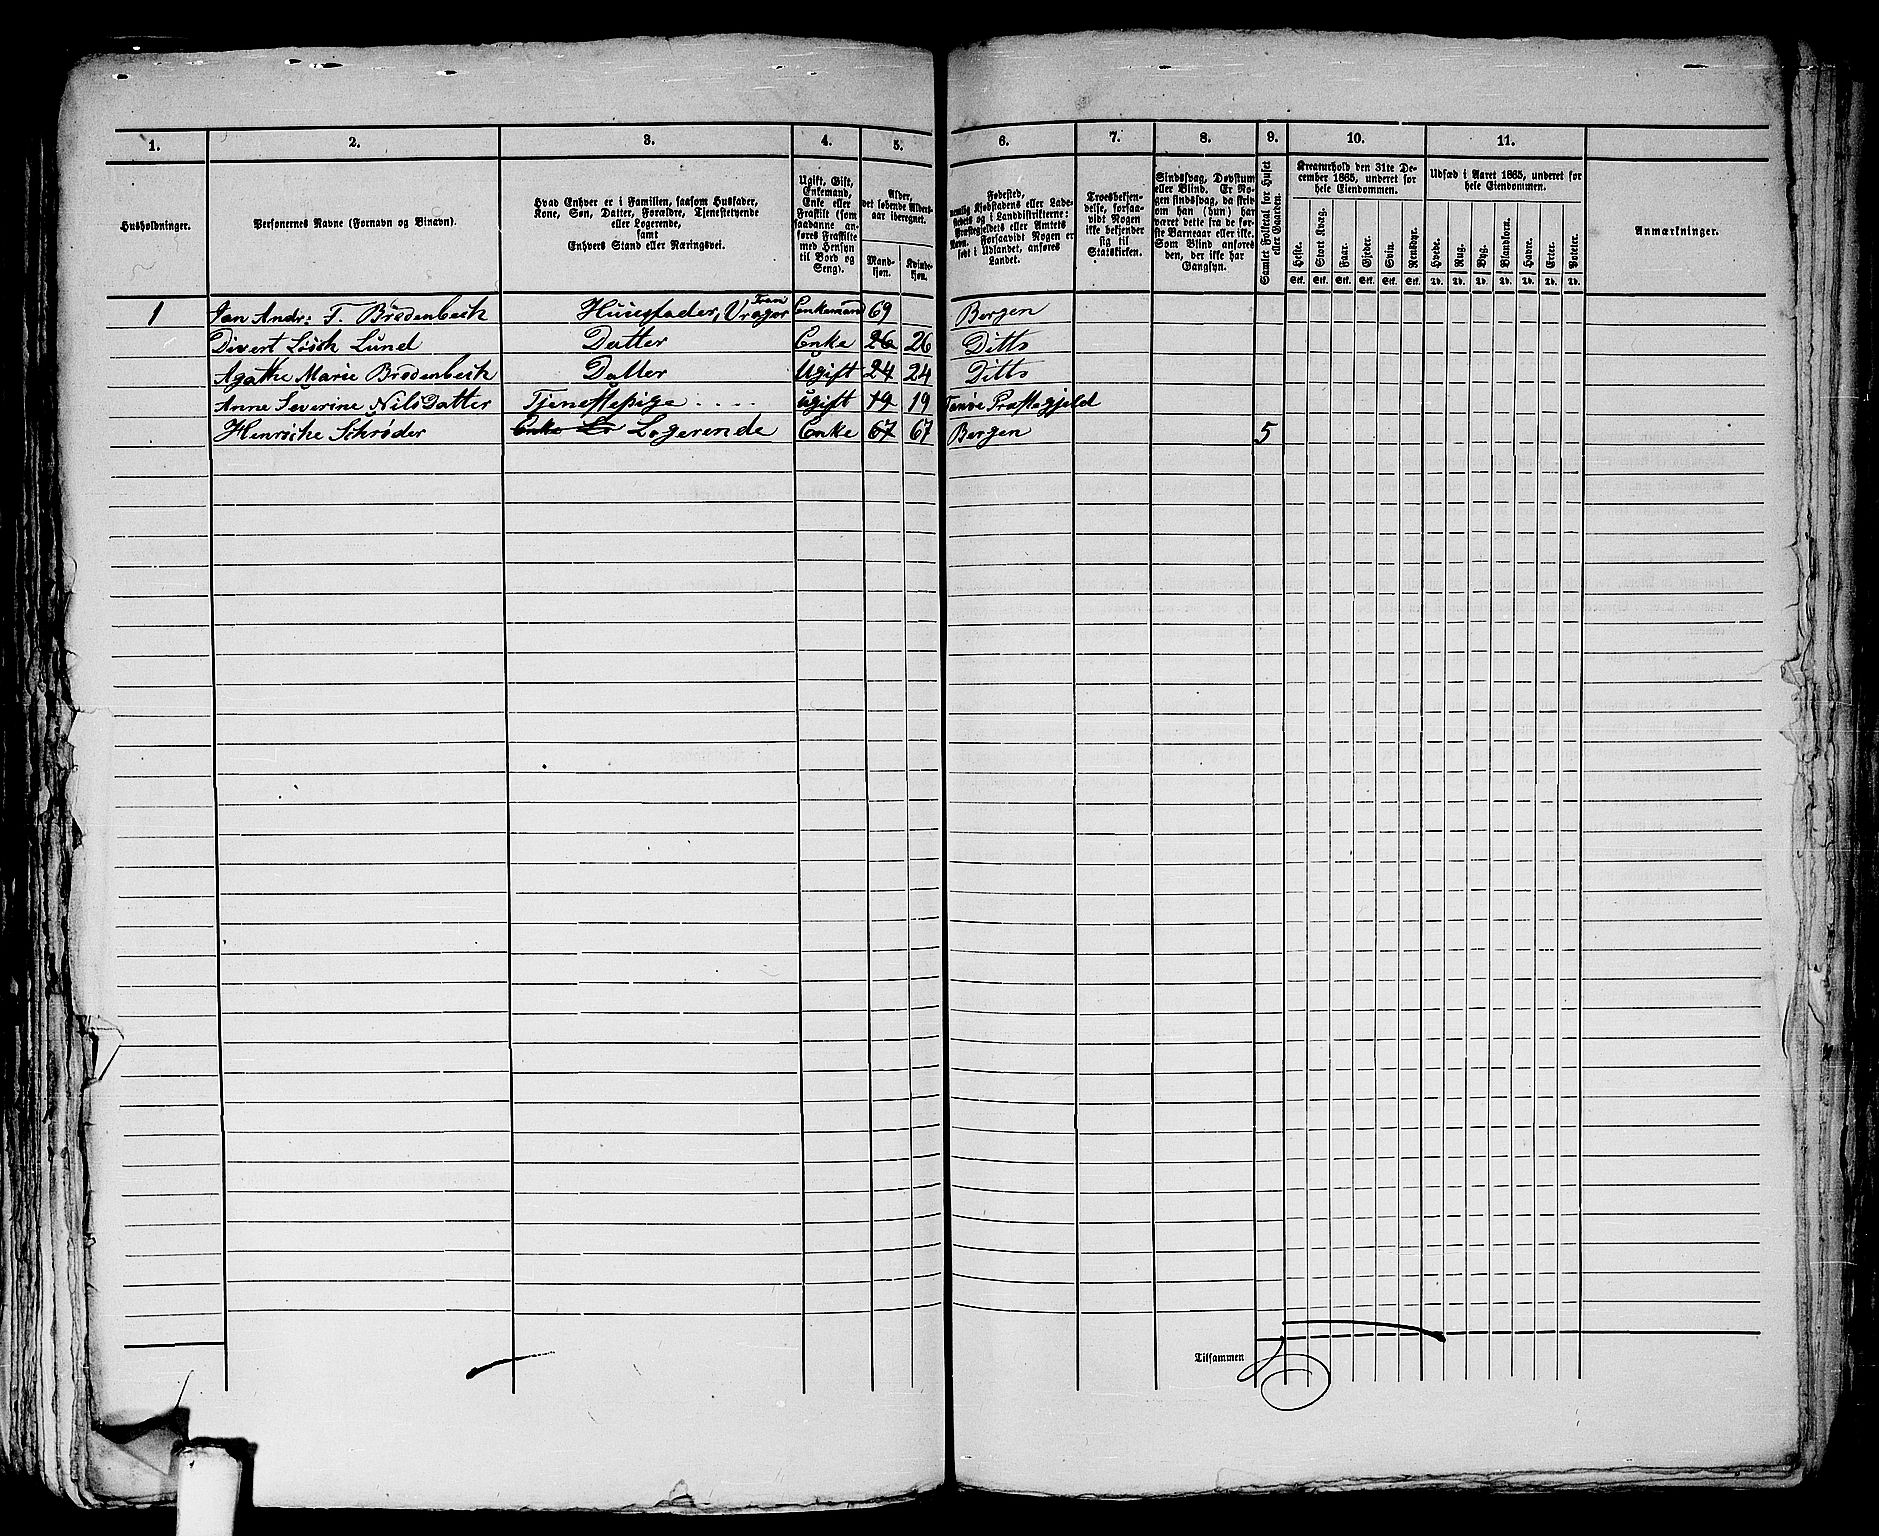 1. 2. 3. 4. 5. 6. 7. 8. 9. 10. 11.
Husholdninger.
Personernes Navne (Fornavn og Binavn).
Hvad Enhver er i Familien, saasom Husfader,
Kone, Søn, Datter, Forældre, Tjenestetyende
eller Logerende,
samt
Enhvers Stand eller Næringsvei.
Ugift, Gift,
Enkemand,
Enke eller
Fraskilt (som
saadanne an-
føres Fraskilte
med Hensyn
til Bord og
Seng).
Alder,
det løbende Alders-
aar iberegnet.
Mand-
kjøn.
Kvinde-
kjøn.
Fødested,
nemlig Kjøbstadens eller Lade-
stedets og i Landdistrikterne:
Præstegjeldets eller Amtets
Navn. Forsaavidt Nogen er
født i Udlandet, anføres
Landet.
Troesbekjen-
delse, forsaa-
vidt Nogen
ikke bekjender
sig til
Statskirken.
Sindssvag, Døvstum
eller Blind. Er No-
gen sindssvag, da skri-
ves om han (hun) har
været dette fra de før-
ste Barneaar eller ikke.
Som Blind anføres
den, der ikke har
Gangsyn.
Samlet Folketal for Huset
eller Gaarden.
Kreaturhold den 31te De-
cember 1865, underet for
hele Eiendommen.
Heste. Stort Kvæg. Faar. Gjeder. Svin. Rensdyr.
Stk. Stk. Stk. Stk. Stk. Stk.
Udsæd i Aaret 1865, underet for
hele Eiendommen.
Hvede. Rug. Byg. Blandkorn. Havre. Erter. Poteter.
Td. Td. Td. Td. Td. Td. Td.
Anmærkninger.
1 Jan Andr: F. Brødenbech Huusfader, Tran Vrager Enkemand 69 Bergen
Divert Lund Datter Enke 26 26 Ditto
Agathe Marie Brødenbech Datter Ugift 24 24 Ditto
Anne Severine Nilsdatter Tjenestepige . . . . ugift 19 19 Præstegjeld
Schrøder Enke Lo Logerende Enke 67 67 Bergen 5
Tilsammen